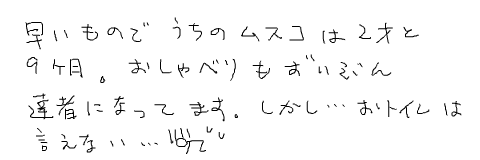 早いもので うちの ムスコ は 2才と
9ヶ月。おしゃべりも ずいぶん
達者になってます。しかし…おトイレは
言えない…